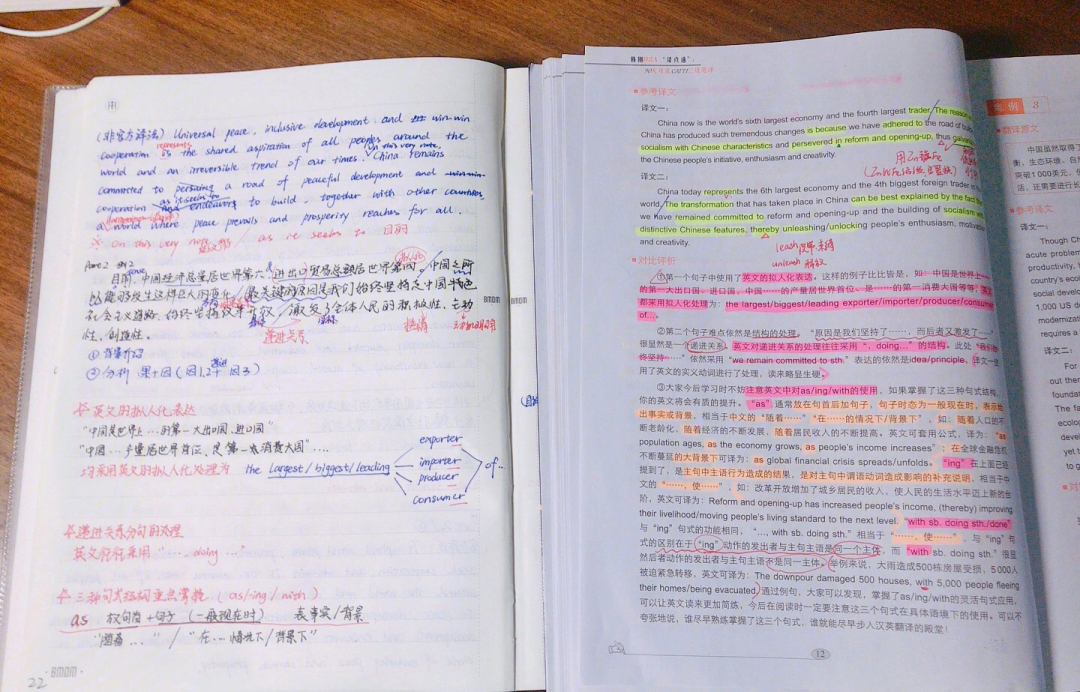 (非官方译法) Universal peace, inclusive development and win-win
cooperation represents is the shared aspiration of all peoples around the
world and an irreversible trend of our times. On this very note, China remains
committed to pursuing a road of peaceful development and win-win
cooperation as it seems to and endeavors to build, together with other countries,
a world where peace prevails and prosperity reaches for all.
※ On this very note / as it seems to 目的
Part 2 例2
目前,中国经济总量居世界第六,进出口贸易总额居世界第四。中国之所
以能够发生这样巨大的变化,最关键的原因是我们始终坚持走中国特色
社会主义道路,始终坚持改革开放,激发了全体人民的积极性、主动
性、创造性。
递进关系
热情
① 背景介绍
② 分析 果+因(因1,2 递进 因3)
英文的拟人化表达
“中国是世界上…的第一大出口国、进口国”
“中国…产量居世界首位、是第一大消费大国”…
均采用英文的拟人化处理为 the largest/biggest/leading
exporter
importer
producer
consumer
of…
递进关系分句的处理
英文往往采用 “…, doing …”
三种句式结构重点掌握 (as/ing/with)
as 放句首+句子 (一般现在时) 表事实/背景
“随着…” / “在…情况下/背景下”
22
·BMDM·
BMDM
韩刚B2A“译点通”:
参考译文
译文一:
China now is the world's sixth largest economy and the fourth largest trader. The reason
China has produced such tremendous changes is because we have adhered to the road of
socialism with Chinese characteristics and persevered in reform and opening-up, thus
the Chinese people's initiative, enthusiasm and creativity.
译文二:
China today represents the 6th largest economy and the 4th biggest foreign trader in
world. The transformation that has taken place in China can be best explained by the fact
we have remained committed to reform and opening-up and the building of socialism
distinctive Chinese features, thereby unleashing/unlocking people's enthusiasm,
and creativity.
unleash 释放
对比评析
①第一个句子中使用了英文的拟人化表达。这样的例子比比皆是,如:中国是世界上
的第一大出口国、进口国,中国……的产量居世界首位、是……的第一消费大国等等,
都采用拟人化处理为:the largest/biggest/leading exporter/importer/producer/consumer
of…。
②第二个句子难点依然是结构的处理,“原因是我们坚持了……,而后者又激发了……”
很显然是一个递进关系,英文对递进关系的处理往往采用“, doing...”的结构。此处“我们始
终坚持……”依然采用“we remain committed to sth.”表达的依然是idea/principle,译文一
用了英文的实义动词进行了处理,读来略显生硬。
③大家今后学习时不妨注意英文中对as/ing/with的使用,如果掌握了这三种句式结构,
你的英文将会有质的提升。“as”通常放在句首后加句子,句子时态为一般现在时,表示给
出事实或背景,相当于中文的“随着……”“在……的情况下/背景下”,如:随着人口的不
断老龄化,随着经济的不断发展,随着居民收入的不断提高。英文可套用公式,译为:“as
population ages, as the economy grows, as people's income increases”;在全球金融危机
不断蔓延的大背景下可译为:as global financial crisis spreads/unfolds。“ing”在上面已经
提到了,是主句中主语行为造成的结果,是对主句中谓语动词造成影响的补充说明,相当于中
文的“……,使……”,如:改革开放增加了城乡居民的收入,使人民的生活水平迈上新的台
阶,英文可译为:Reform and opening-up has increased people's income, (thereby) improving
their livelihood/moving people's living standard to the next level. “with sb. doing sth./done”
与“ing”句式的功能相同,“..., with sb. doing sth.”相当于“……,使……”,与“ing”句
式的区别在于“ing”动作的发出者与主句主语是同一个主体,而“with sb. doing sth.”很显
然后者动作的发出者与主句主语不是同一主体。举例来说,大雨造成500栋房屋受损,5 000人
被迫紧急转移,英文可译为:The downpour damaged 500 houses, with 5,000 people fleeing
their homes/being evacuated.通过例句,大家可以发现,掌握了as/ing/with的灵活句式应用,
可以让英文读来更加简练,今后在阅读时一定要注意这三个句式在具体语境下的使用。可以不
夸张地说,谁尽早熟练掌握了这三个句式,谁就能尽早步入汉英翻译的殿堂!
12
案例 3
翻译原文
中国虽然取得了
衡,生态环境、自然
突破1 000美元,
活,还需要进行长
参考译文
译文一:
Though Ch
acute proble
productivity,
country's eco
social develo
1,000 US d
modernizat
requires a
译文二:
For
out them
foundat
The fa
ecolog
devel
yet t
to g